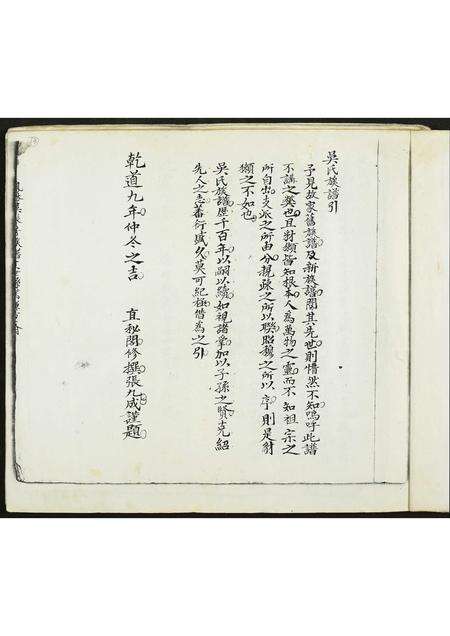 吳氏族譜引
予見故家舊族譜及新族譜閱其先世則懵然不知嗚呼此譜
不講之矣也且豺獺皆知根本人為萬物之靈而不知祖宗之
所自出支派之所由分親疎之所以聯昭穆之所以序則是豺
獺之不如也
吳氏族譜歷千百年以嗣以續如視諸掌加以子孫之賢克紹
先人之志蕃衍盛久莫可紀極僭為之引
乾道九年仲冬之吉
直秘閣修撰張九成謹題